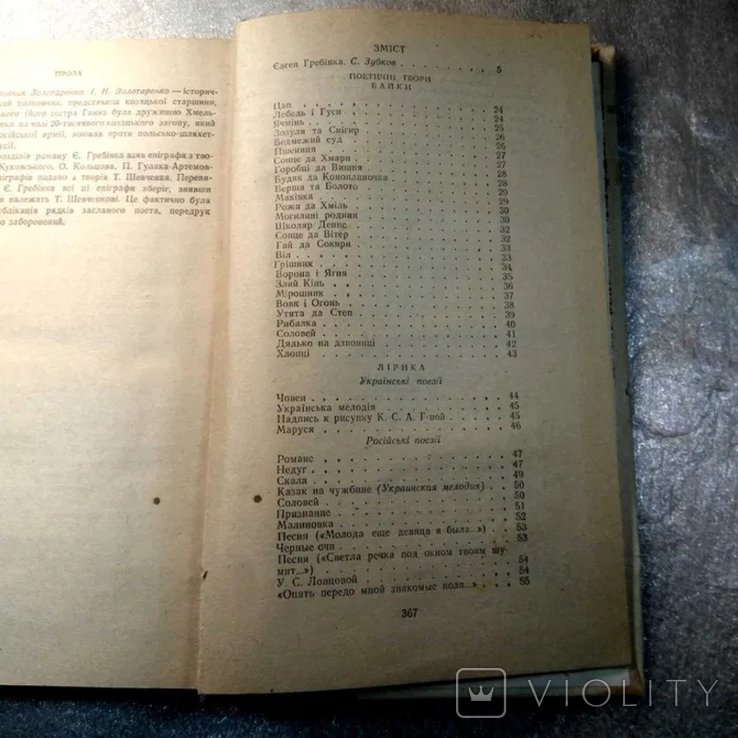 ПРОЗА
Золотаренко. І. Н. Золотаренко — історич-
полковник, представник козацької старшини,
(його сестра Ганна була дружиною Хмель-
на чолі 20-тисячного козацького загону, який
російської армії, воював проти польсько-шляхет-
русії.
розділів роману Є. Гребінка взяв епіграфи з тво-
Жуковського, О. Кольцова, П. Гулака-Артемов-
епіграфів подано з творів Т. Шевченка. Переви-
Є. Гребінка всі ці епіграфи зберіг, знявши
належать Т. Шевченкові. Це фактично була
публікація рядків засланого поета, передрук
заборонений.
ЗМІСТ
Євген Гребінка. С. Зубков . . . . . . . 5
ПОЕТИЧНІ ТВОРИ
БАЙКИ
Цап . . . . . . . . . 24
Лебедь і Гуси . . . . . . . . . 24
Ячмінь . . . . . . . . . 25
Зозуля та Снігир . . . . . . . . . 25
Ведмежий суд . . . . . . . . . 26
Пшениця . . . . . . . . . 26
Сонце да Хмари . . . . . . . . . 27
Горобці да Вишня . . . . . . . . . 27
Будяк да Коноплиночка . . . . . . . . . 28
Верша та Болото . . . . . . . . . 28
Маківка . . . . . . . . . 29
Рожа да Хміль . . . . . . . . . 29
Могилині родини . . . . . . . . . 30
Школяр Денис . . . . . . . . . 30
Сонце да Вітер . . . . . . . . . 32
Гай да Сокири . . . . . . . . . 32
Віл . . . . . . . . . 33
Грішник . . . . . . . . . 34
Ворона і Ягня . . . . . . . . . 35
Злий Кінь . . . . . . . . . 36
Мірошник . . . . . . . . . 37
Вовк і Огонь . . . . . . . . . 38
Утята да Степ . . . . . . . . . 39
Рибалка . . . . . . . . . 40
Соловей . . . . . . . . . 41
Дядько на дзвониці . . . . . . . . . 42
Хлопці . . . . . . . . . 43
ЛІРИКА
Українські поезії
Човен . . . . . . . . . 44
Українська мелодія . . . . . . . . . 45
Надпись к рисунку К. С. А. Г-ной . . . . 45
Маруся . . . . . . . . . 46
Російські поезії
Романс . . . . . . . . . 47
Недуг . . . . . . . . . 47
Скала . . . . . . . . . 49
Казак на чужбине (Украинская мелодия) . . 50
Соловей . . . . . . . . . 50
Признание . . . . . . . . . 51
Малиновка . . . . . . . . . 52
Песня («Молода еще девица я была...») . . 53
Черные очи . . . . . . . . . 53
Песня («Светла речка под окном твоим шу-
мит...») . . . . . . . . . 54
У. С. Ловцовой . . . . . . . . . 54
«Опять передо мной знакомые поля...» . . 55
367
VIOLITY